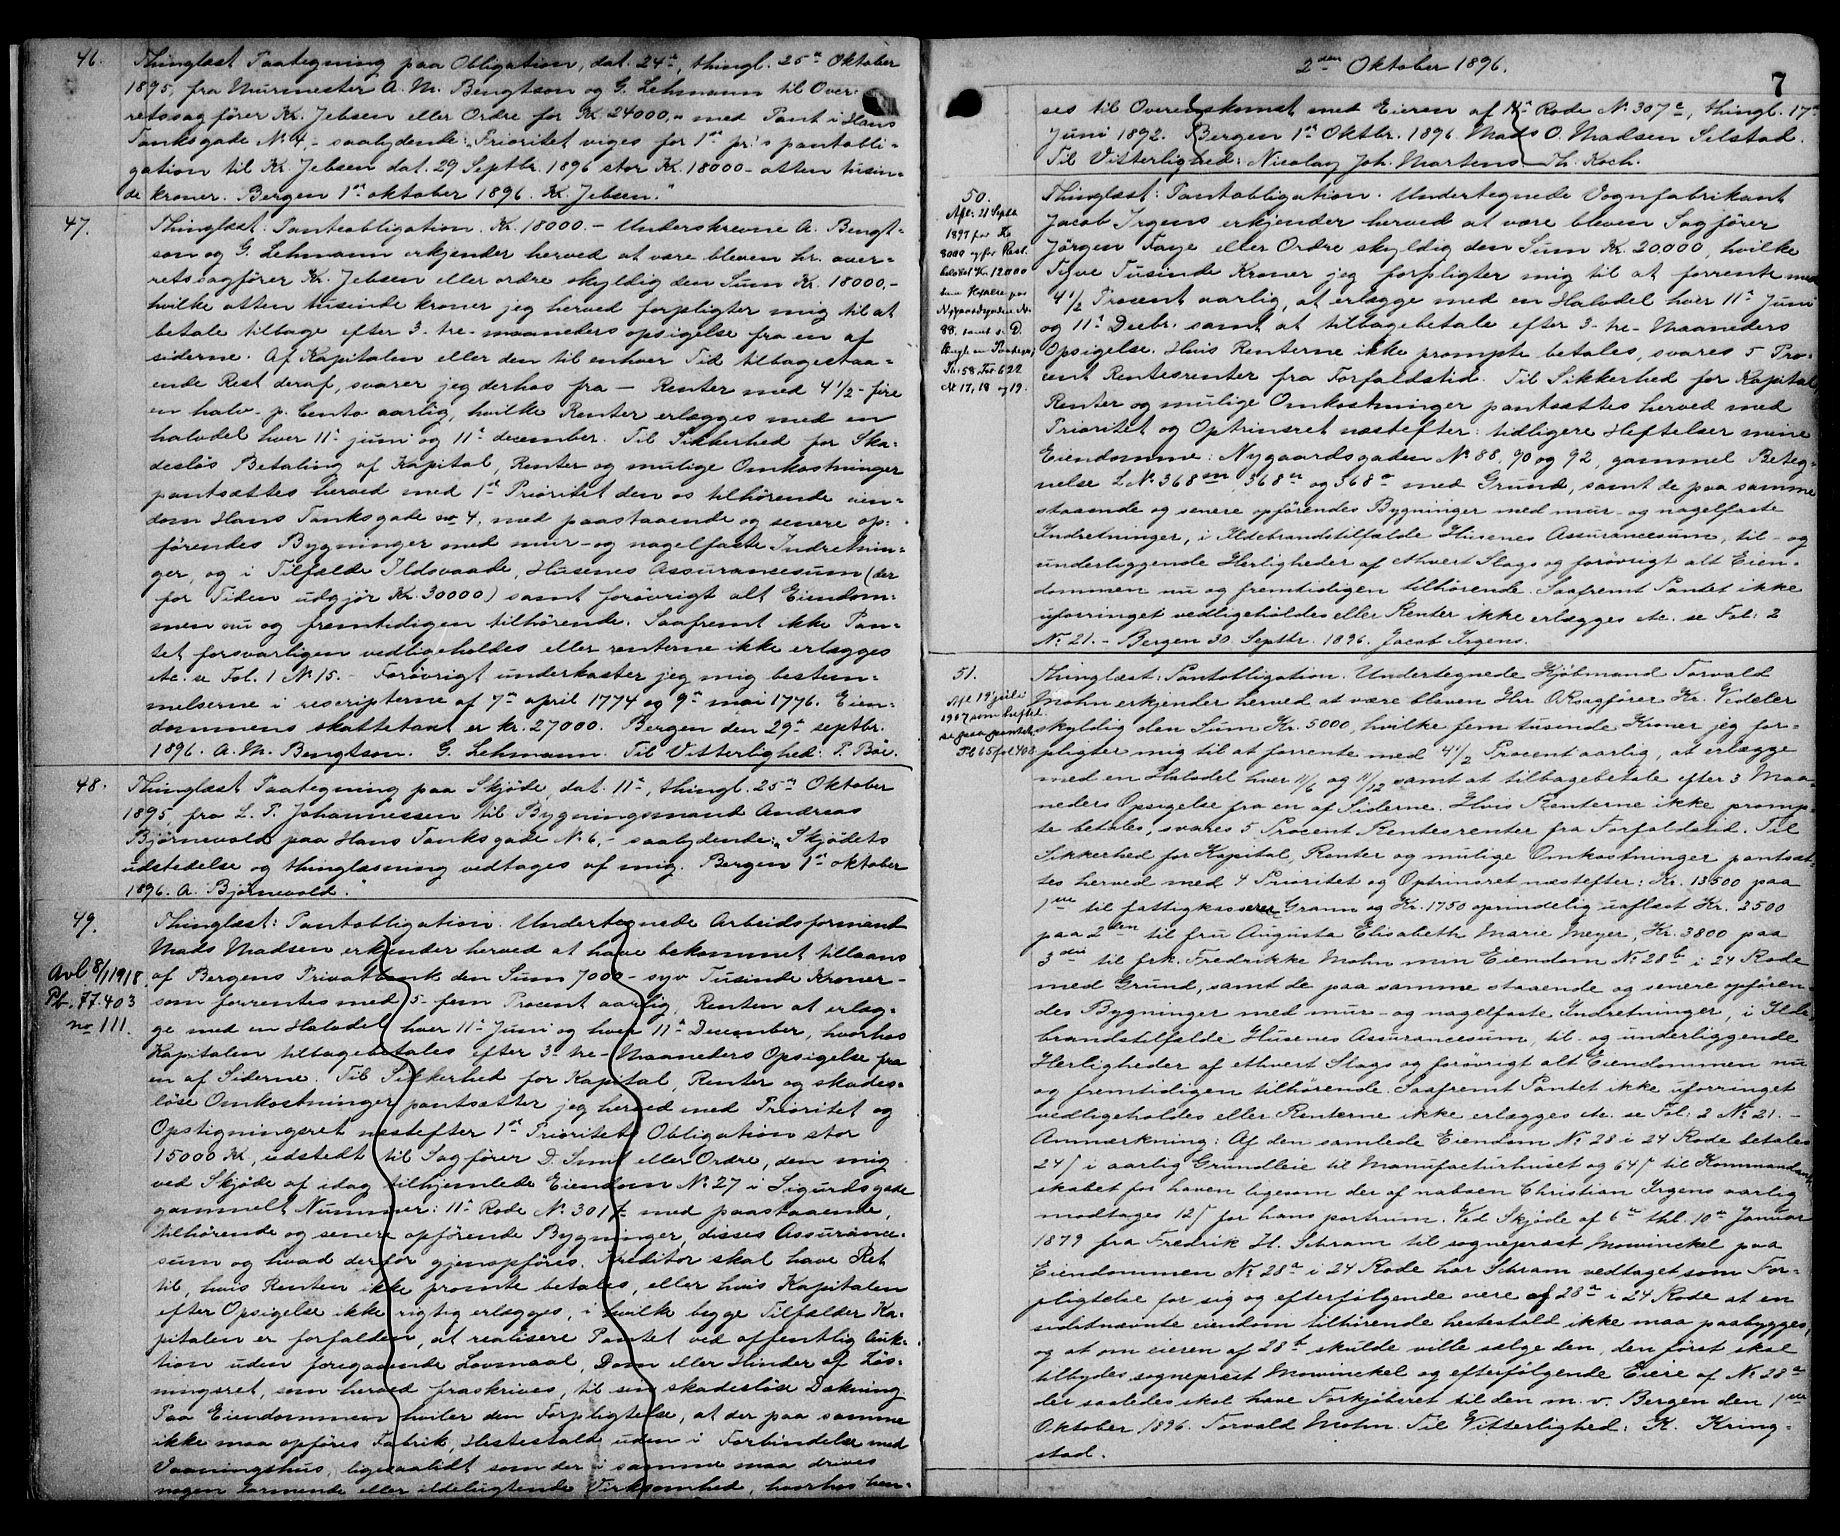 46.
Thinglæst Paategning paa Obligation, dat. 24de, thingl. 25de Oktober
1895, fra Murmester A. M. Bengtson og G. Lehmann til Over-
retssagfører Kr. Jebsen eller Ordre for Kr. 24000,- med Pant i Hans
Tanksgade No 4,- saalydende: "Prioritet viges for 1ste pr:s pantobli-
gation til Kr. Jebsen dat. 29 Septbr. 1896 stor Kr. 18000 - atten tusin-
de kroner. Bergen 1ste oktober 1896. Kr. Jebsen."
47.
Thinglæst: Panteobligation. Kr. 18000. - Underskrevne A. Bengt-
son og G. Lehmann erkjender herved at være bleven hr. over-
retssagfører Kr. Jebsen eller ordre skyldig den Sum Kr. 18000.-
hvilke atten tusinde kroner jeg herved forpligter mig til at
betale tilbage efter 3 - tre - maaneders opsigelse fra en af
siderne. Af Kapitalen eller den til enhver Tid tilbagestaa-
ende Rest deraf, svarer jeg derhos fra — Renter med 4 1/2 - fire
en halv - p. Cento aarlig, hvilke Renter erlægges med en
halvdel hver 11te juni og 11te december. Til Sikkerhed for Ska-
desløs Betaling af Kapital, Renter og mulige Omkostninger
pantsættes herved med 1ste Prioritet den os tilhørende eien-
dom Hans Tanksgade no 4, med paastaaende og senere op-
førendes Bygninger med mur- og nagelfaste Indretnin-
ger, og i Tilfælde Ildsvaade, Husenes Assurancesum (der
for Tiden udgjør Kr. 30000) samt forøvrigt alt Eiendom-
men nu og fremtidigen tilhørende. Saafremt ikke Pan-
tet forsvarligen vedligeholdes eller renterne ikke erlægges
etc. se Fol. 1 No 15. - Forøvrigt underkaster jeg mig bestem-
melserne i rescripterne af 7de april 1774 og 9de mai 1776. Eien-
dommens skattetaxt er kr. 27000. Bergen den 29de septbr.
1896. A. M. Bengtson. G. Lehmann. Til Vitterlighed: P. Bøe.
48.
Thinglæst Paategning paa Skjøde, dat. 11te, thingl. 25de Oktober
1895, fra L. P. Johannessen til Bygningsmand Andreas
Bjørnevold paa Hans Tanksgade No 6, - saalydende: "Skjødets
udstedelse og thinglæsning vedtages af mig. Bergen 1ste oktober
1896. A. Bjørnevold."
49.
Avl 8/1 1918.
Pb. 77.403
no 111.
Thinglæst: Pantobligation. Undertegnede Arbeidsformand
Mads Madsen erkjender herved at have bekommet tillaans
af Bergens Privatbank den Sum 7000 - syv Tusinde Kroner -
som forrentes med 5 - fem Procent aarlig, Renten at erlæg-
ge med en Halvdel hver 11te Juni og hver 11te December, hvorhos
Kapitalen tilbagebetales efter 3 - tre - Maaneders Opsigelse fra
en af Siderne. Til Sikkerhed for Kapital, Renter og skades-
løse Omkostninger pantsætter jeg herved med Prioritet og
Opstigningsret næstefter 1ste Prioritets Obligation stor
15000 Kr, udstedt til Sagfører D. Smit eller Ordre, den mig
ved Skjøde af idag tilhjemlede Eiendom No 27 i Sigurdsgade
gammelt Nummer: 11te Rode No 301 f med paastaaende,
tilhørende og senere opførende Bygninger, disses Assurance-
sum og hvad derfor gjenopføres. Kreditor skal have Ret
til, hvis Renten ikke promte betales, eller hvis Kapitalen
efter Opsigelse ikke rigtig erlægges, i hvilke begge Tilfælder Ka-
pitalen er forfalden, at realisere Pantet ved offentlig Auk-
tion uden foregaaende Lovmaal, Dom eller Hinder af Løs-
ningsret, som herved fraskrives, til sin skadesløse Dækning
Paa Eiendommen hviler den Forpligtelse, at der paa samme
ikke maa opføres Fabrik, Hestestald uden i Forbindelse med
Vaaningshus, ligesaalidt som der i samme maa drives
nogen larmende eller ildelugtende Virksomhed, hvorhos hen-
2den Oktober 1896.
7
ses til Overenskomst med Eieren af 11te Rode No 307a, thingl. 17de
Juni 1892. Bergen 1ste Oktbr. 1896. Mads O. Madsen Selstad.
Til Vitterlighed: Nicolay Joh. Martens - Th. Koch.
50.
Afl: 21 Septb
1897 for Kr
8000 og for Rest.
beløbet Kr. 12000
Nygaardsgaden No
88, samt
Pb. 58. Fol 622
No 17, 18 og 19.
Thinglæst: Pantobligation. Undertegnede Vognfabrikant
Jacob Irgens erkjender herved at være bleven Sagfører
Jørgen Faye eller Ordre skyldig den Sum Kr. 20000, hvilke
Tyve Tusinde Kroner jeg forpligter mig til at forrente med
4 1/2 Procent aarlig, at erlægge med en Halvdel hver 11te Juni
og 11te Decbr. samt at tilbagebetale efter 3 - tre - Maaneders
Opsigelse. Hvis Renterne ikke prompte betales, svares 5 Pro-
cent Rentesrenter fra Forfaldstid. Til Sikkerhed for Kapital
Renter og mulige Omkostninger pantsættes herved med
Prioritet og Optrinsret næstefter tidligere Heftelser mine
Eiendomme: Nygaardsgaden No 88, 90 og 92, gammel Beteg-
nelse L No 368m, 368n og 368o med Grund, samt de paa samme
staaende og senere opførendes Bygninger med mur- og nagelfaste
Indretninger, i Ildebrandstilfælde Husenes Assurancesum, til- og
underliggende Herligheder af ethvert Slags og forøvrigt alt Eien-
dommen nu og fremtidigen tilhørende. Saafremt Pantet ikke
uforringet vedligeholdes eller Renter ikke erlægges etc. se Fol: 2
No 21. - Bergen 30 Septbr. 1896. Jacob Irgens.
51.
Afl 19 juli
1907 som heftel.
se paa pantet.
Pb 65 fol 403
Thinglæst: Pantobligation. Undertegnede Kjøbmand Torvald
Mohn erkjender herved at være bleven Hr ORsagfører Kr. Vedeler
skyldig den Sum Kr. 5000, hvilke fem tusinde Kroner jeg for-
pligter mig til at forrente med 4 1/2 Procent aarlig, at erlægge
med en Halvdel hver 11/6 og 11/12 samt at tilbagebetale efter 3 Maa-
neders Opsigelse fra en af Siderne. Hvis Renterne ikke promp-
te betales, svares 5 Procent Rentesrenter fra Forfaldstid. Til
Sikkerhed for Kapital, Renter og mulige Omkostninger pantsæt-
tes herved med 4 Prioritet og Optrinsret næstefter: Kr. 13500 paa
1ste til fattigkasserer Grann og Kr. 1750 oprindelig uaflæst Kr. 3500
paa 2den til fru Augusta Elisabeth Marie Meyer, Kr. 3800 paa
3die til frk. Fredrikke Mohn min Eiendom No 28b i 24 Rode
med Grund, samt de paa samme staaende og senere opføren-
des Bygninger med mur- og nagelfaste Indretninger, i Ilde-
brandstilfælde Husenes Assurancesum, til- og underliggende
Herligheder af ethvert Slags og forøvrigt alt Eiendommen nu
og fremtidigen tilhørende. Saafremt Pantet ikke uforringet
vedligeholdes eller Renterne ikke erlægges etc. se Fol: 2 No 21. -
Anmærkning: Af den samlede Eiendom No 28 i 24 Rode betales
24 ſ i aarlig Grundleie til Manufacturhuset og 64 ſ til Kommandant-
skabet for haven ligesom der af naboen Christian Irgens aarlig
modtages 12 ſ for hans portrum. Ved Skjøde af 6te thl. 10de Januar
1879 fra Fredrik H. Schram til sogneprest Mowinckel paa
Eiendommen No 28a i 24 Rode har Schram vedtaget som For-
pligtelse for sig og efterfølgende eiere af 28a i 24 Rode at en
sidstnævnte eiendom tilhørende hestestald ikke maa paabygges,
og at om eieren af 28b skulde ville sælge den, den først skal
tilbydes sogneprest Mowinckel og efterfølgende Eiere af No 28a
der saaledes skal have Forkjøbsret til den m. v. Bergen den 1ste
Oktober 1896. Torvald Mohn. Til Vitterlighed: K. Kring-
stad.